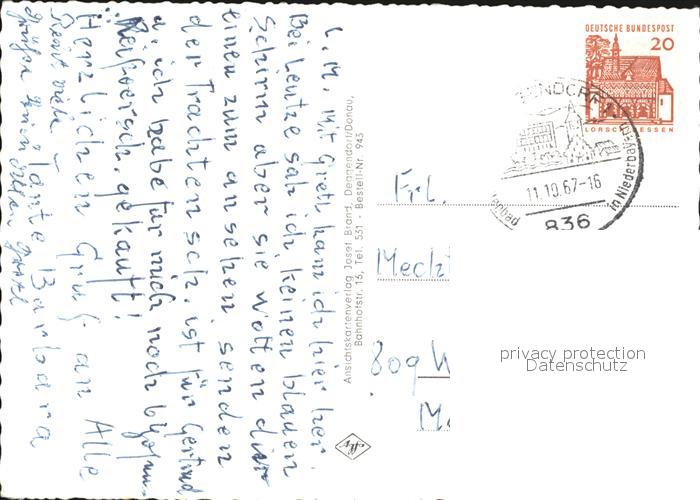 L. M. Mit Gretl kam ich hier her.
Bei Lentze sah ich keinen blauen
Schirm aber sie wollen dir
einen zum ansehen senden
der Trachtensch. ist für Gertrud
u. ich habe für mich noch
gekauft!
Herzlichen Gruß an Alle
Tante Barbara
Ansichtskartenverlag Josef Brand, Deggendorf/Donau,
Bahnhofstr. 13, Tel. 531 - Bestell-Nr. 943
DEUTSCHE BUNDESPOST
20
LORSCH HESSEN
11.10.67-16
in Niederbay
836
Frl.
Mecht
809 W
privacy protection
Datenschutz